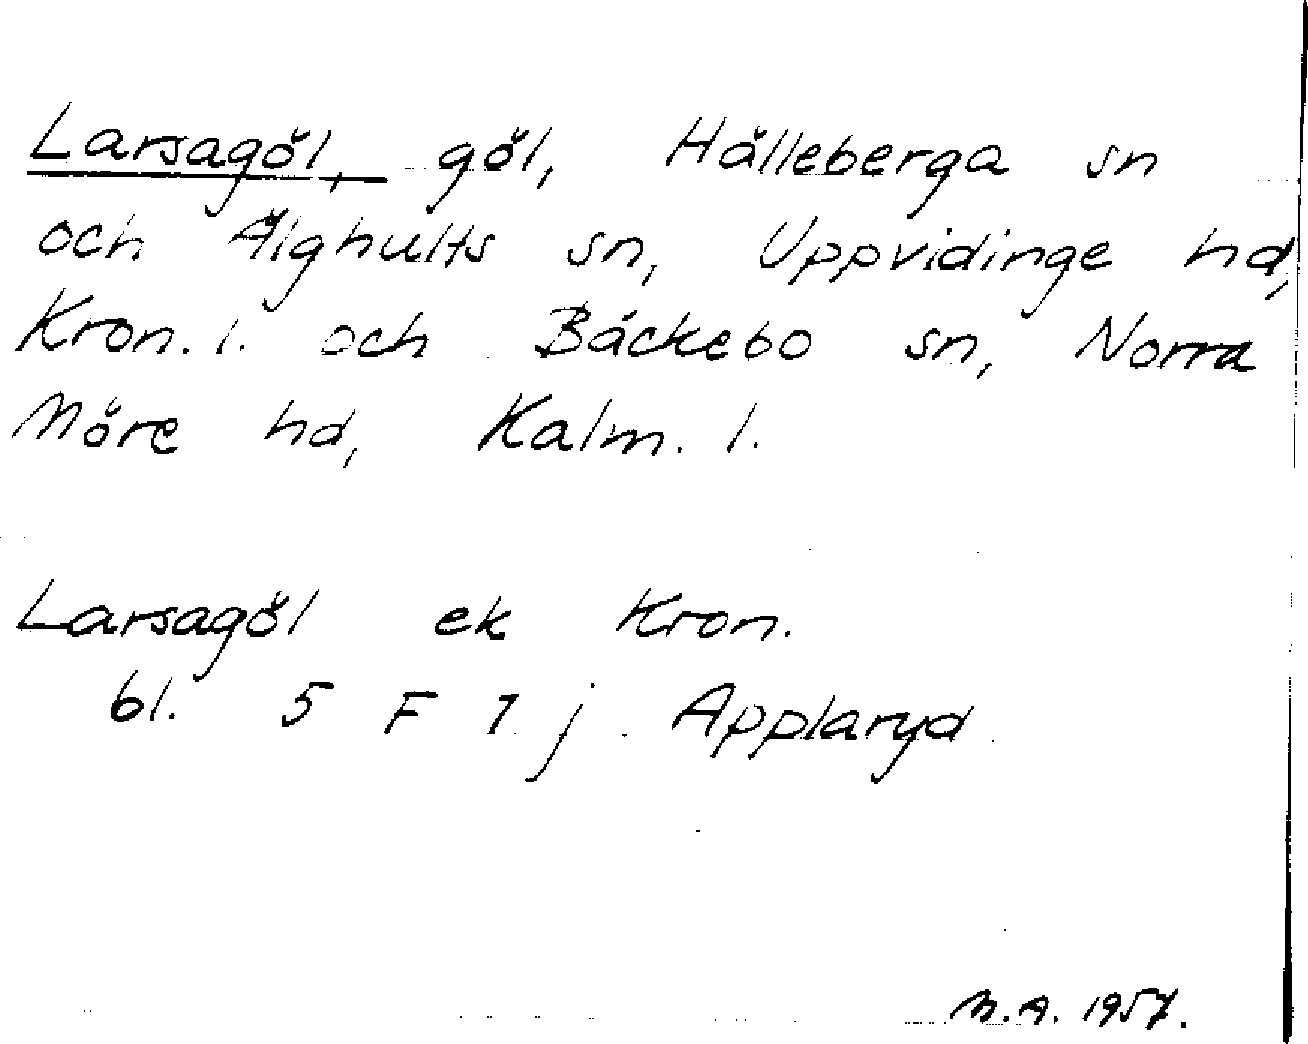 Larsagöl, göl, Hälleberga sn
och Älghults sn, Uppvidinge hd,
Kron. l. och Bäckebo sn, Norra
Möre hd, Kalm. l.
Larsagöl ek Kron.
bl. 5 F 1 j Applaryd
M.A. 1957.